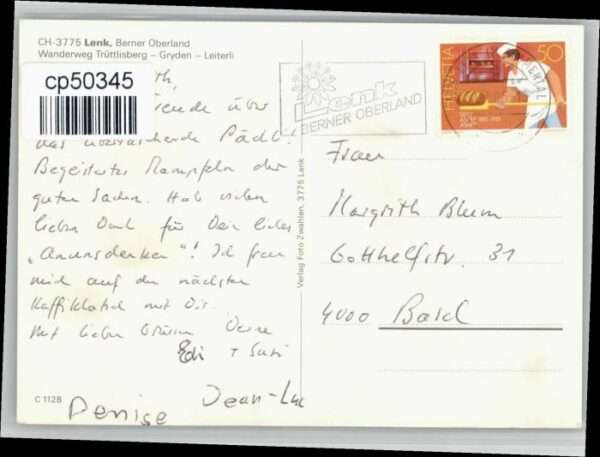 CH-3775 Lenk, Berner Oberland
Wanderweg Trüttlisberg – Gryden – Leiterli
cp50345
über
das
Begeistertes der
guten Sachen. Hab vielen
lieben Dank für Dein liebes
"Anunsdenken"! Ich freu
mich auf den nächsten
Kaffiklatsch mit Dir.
Mit lieben Grüssen Deine
Edi + Susi
Jean-Luc
Denise
C 1128
Verlag Foto Zwahlen, 3775 Lenk
Lenk
BERNER OBERLAND
HELVETIA
50
Frau
Margrith Blum
Gotthelfstr. 31
4000 Basel